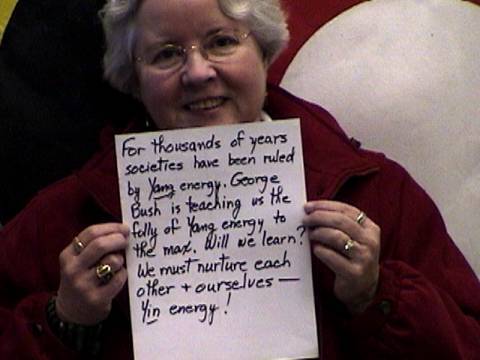 For thousands of years
societies have been ruled
by Yang energy. George
Bush is teaching us the
folly of Yang energy to
the max. Will we learn?
We must nurture each
other + ourselves —
Yin energy!